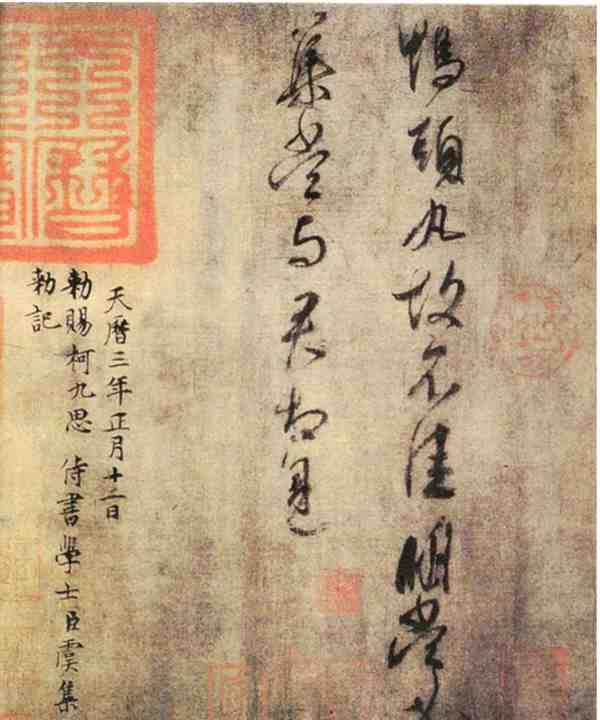 鴨頭丸故不佳明當
集當與君相見
天曆三年正月十二日
勅賜柯九思 侍書學士臣虞集
勅記